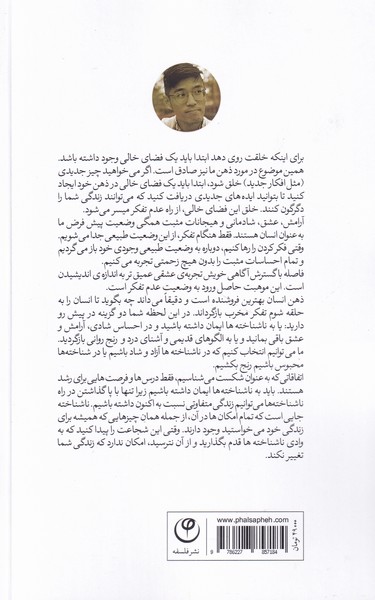 برای اینکه خلقت روی دهد ابتدا باید یک فضای خالی وجود داشته باشد.
همین موضوع در مورد ذهن ما نیز صادق است. اگر می خواهید چیز جدیدی
(مثل افکار جدید) خلق شود، ابتدا باید یک فضای خالی در ذهن خود ایجاد
کنید تا بتوانید ایده‌های جدیدی دریافت کنید که می‌توانند زندگی شما را
دگرگون کنند. خلق این فضای خالی، از راه عدم تفکر میسر می‌شود.
آرامش، عشق، شادمانی و هیجانات مثبت همگی وضعیت پیش فرض ما
به عنوان انسان هستند. فقط هنگام تفکر، از این وضعیت طبیعی جدا می‌شویم.
وقتی فکر کردن را رها کنیم، دوباره به وضعیت طبیعی وجودی خود باز می‌گردیم
و تمام احساسات مثبت را بدون هیچ زحمتی تجربه می‌کنیم.
فاصله با گسترش آگاهی خویش تجربه‌ی عشقی عمیق تر به اندازه‌ی اندیشیدن
است. این موهبت حاصل ورود به وضعیت عدم تفکر است.
ذهن انسان بهترین فروشنده است و دقیقا می‌داند چه بگوید تا انسان را به
حلقه شوم تفکر مخرب بازگرداند. در این لحظه شما دو گزینه در پیش رو
دارید: یا به ناشناخته ها ایمان داشته باشید و در احساس شادی، آرامش و
عشق باقی بمانید و یا به الگوهای قدیمی و آشنای درد و رنج روانی بازگردید.
ما می توانیم انتخاب کنیم که در ناشناخته ها آزاد و شاد باشیم یا در شناخته‌ها
محبوس باشیم رنج بکشیم.
اتفاقاتی که به عنوان شکست می‌شناسیم، فقط درس‌ها و فرصت‌هایی برای رشد
هستند. باید به ناشناخته ها ایمان داشته باشیم زیرا تنها با پا گذاشتن در راه
ناشناخته‌ها می‌توانیم زندگی متفاوتی نسبت به اکنون داشته باشیم. ناشناخته
جایی است که تمام امکان ها در آن، از جمله همان چیزهایی که همیشه برای
زندگی خود می‌خواستید وجود دارند. وقتی این شجاعت را پیدا کنید که به
وادی ناشناخته ها قدم بگذارید و از آن نترسید، امکان ندارد که زندگی شما
تغییر نکند.
نشر فلسفه
www.phalsapheh.com
9 786227 057164
۴۹۰۰۰ تومان